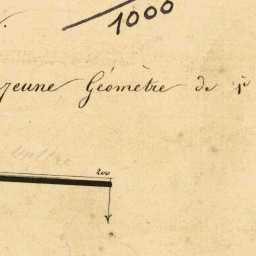 1000
jeune Géomètre de 1e
200